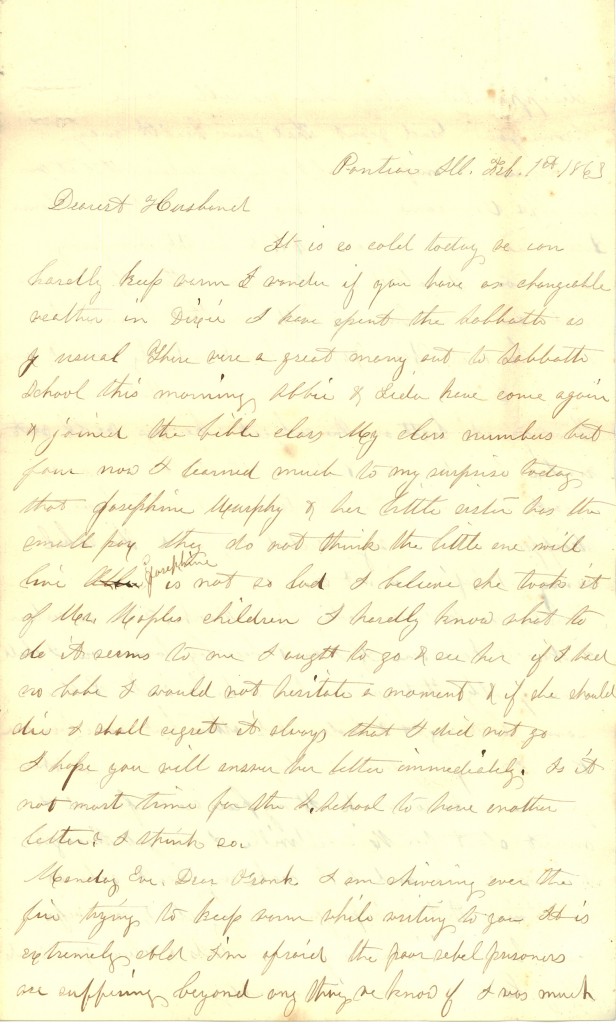 Pontiac Ill. Feb. 1st 1863
Dearest Husband
It is so cold today we can
hardly keep warm I wonder if you have as changeable
weather in Dixie I have spent the Sabbath as
usual There were a great many out to Sabbath
School this morning Abbie & Lida have come again
& joined the bible class My class numbers but
four now I learned much to my surprise today
that Josephine Murphy & her little sister has the
small pox they do not think the little one will
live Josephine is not so bad I believe she took it
of Mr. Naples children I hardly know what to
do it seems to me I ought to go & see her if I had
no babe I would not hesitate a moment & if she should
die I shall regret it always that I did not go
I hope you will answer her letter immediately. Is it
not most time for the S. School to have another
letter? I think so.
Monday Eve. Dear Frank I am shivering over the
fire trying to keep warm while writing to you It is
extremely cold I'm afraid the poor rebel prisoners
are suffering beyond any thing we know of I was much